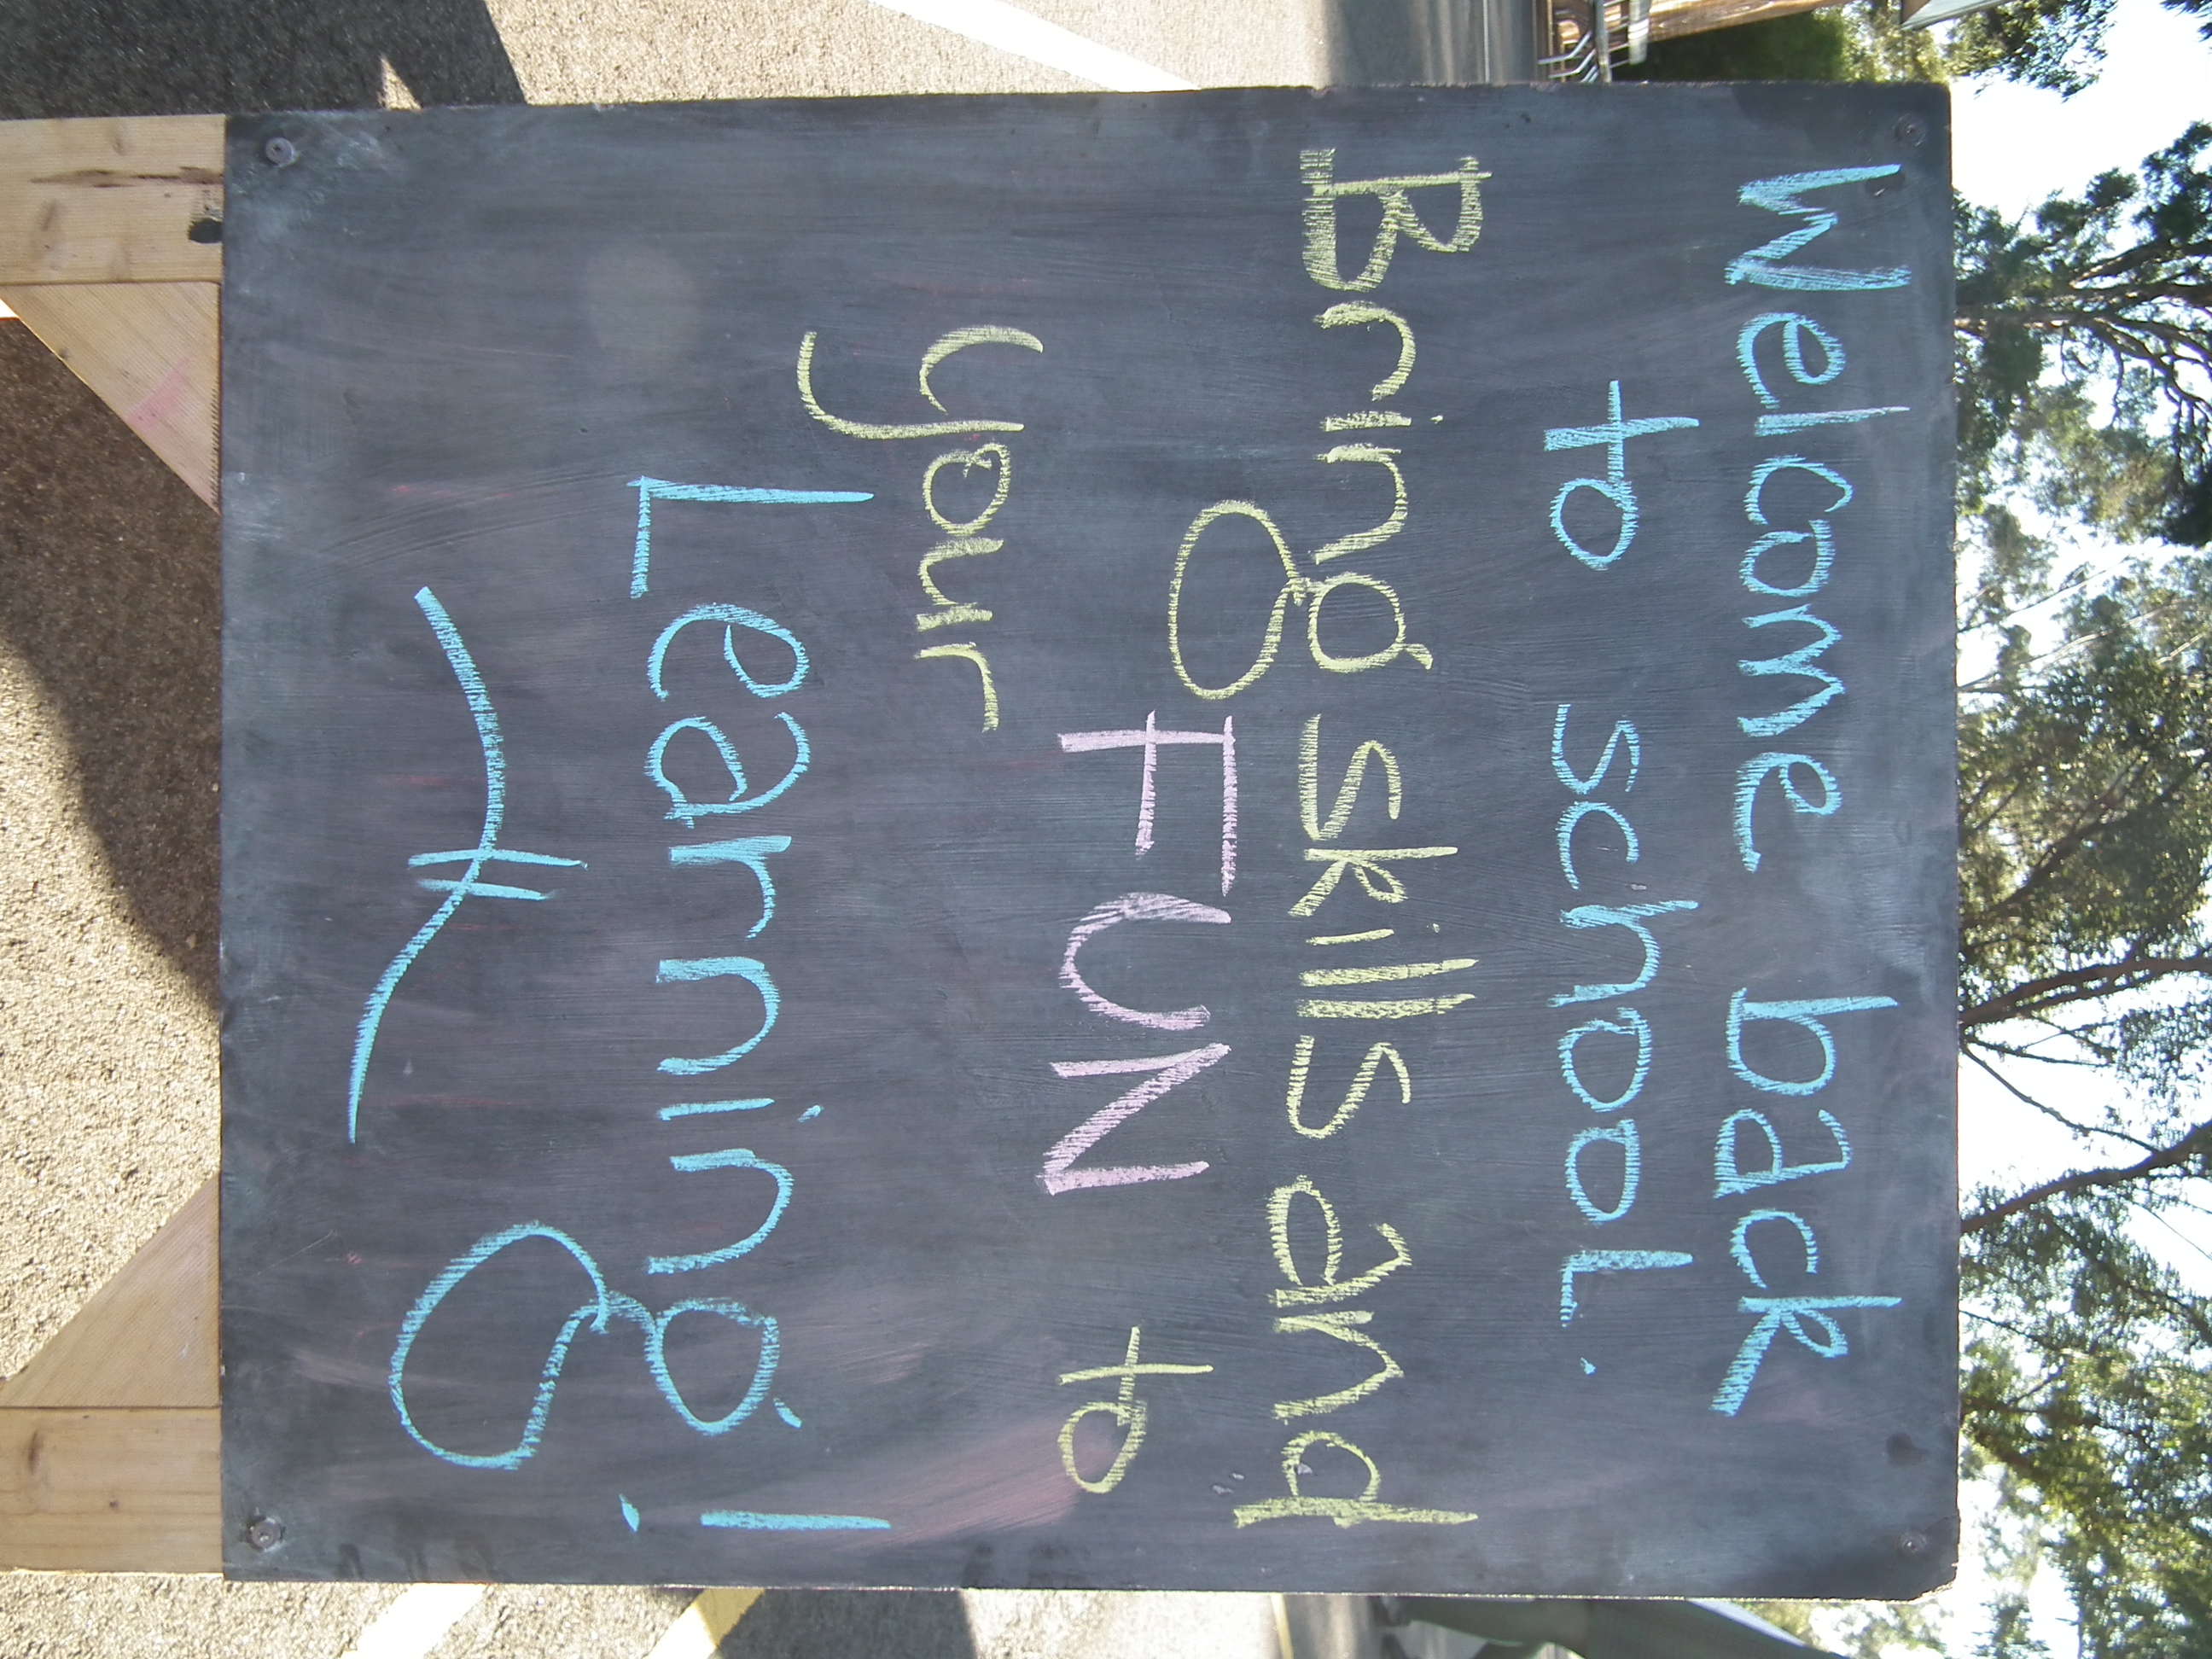 Welcome back
to school.
Bring skills and
FUN to
your
Learning!